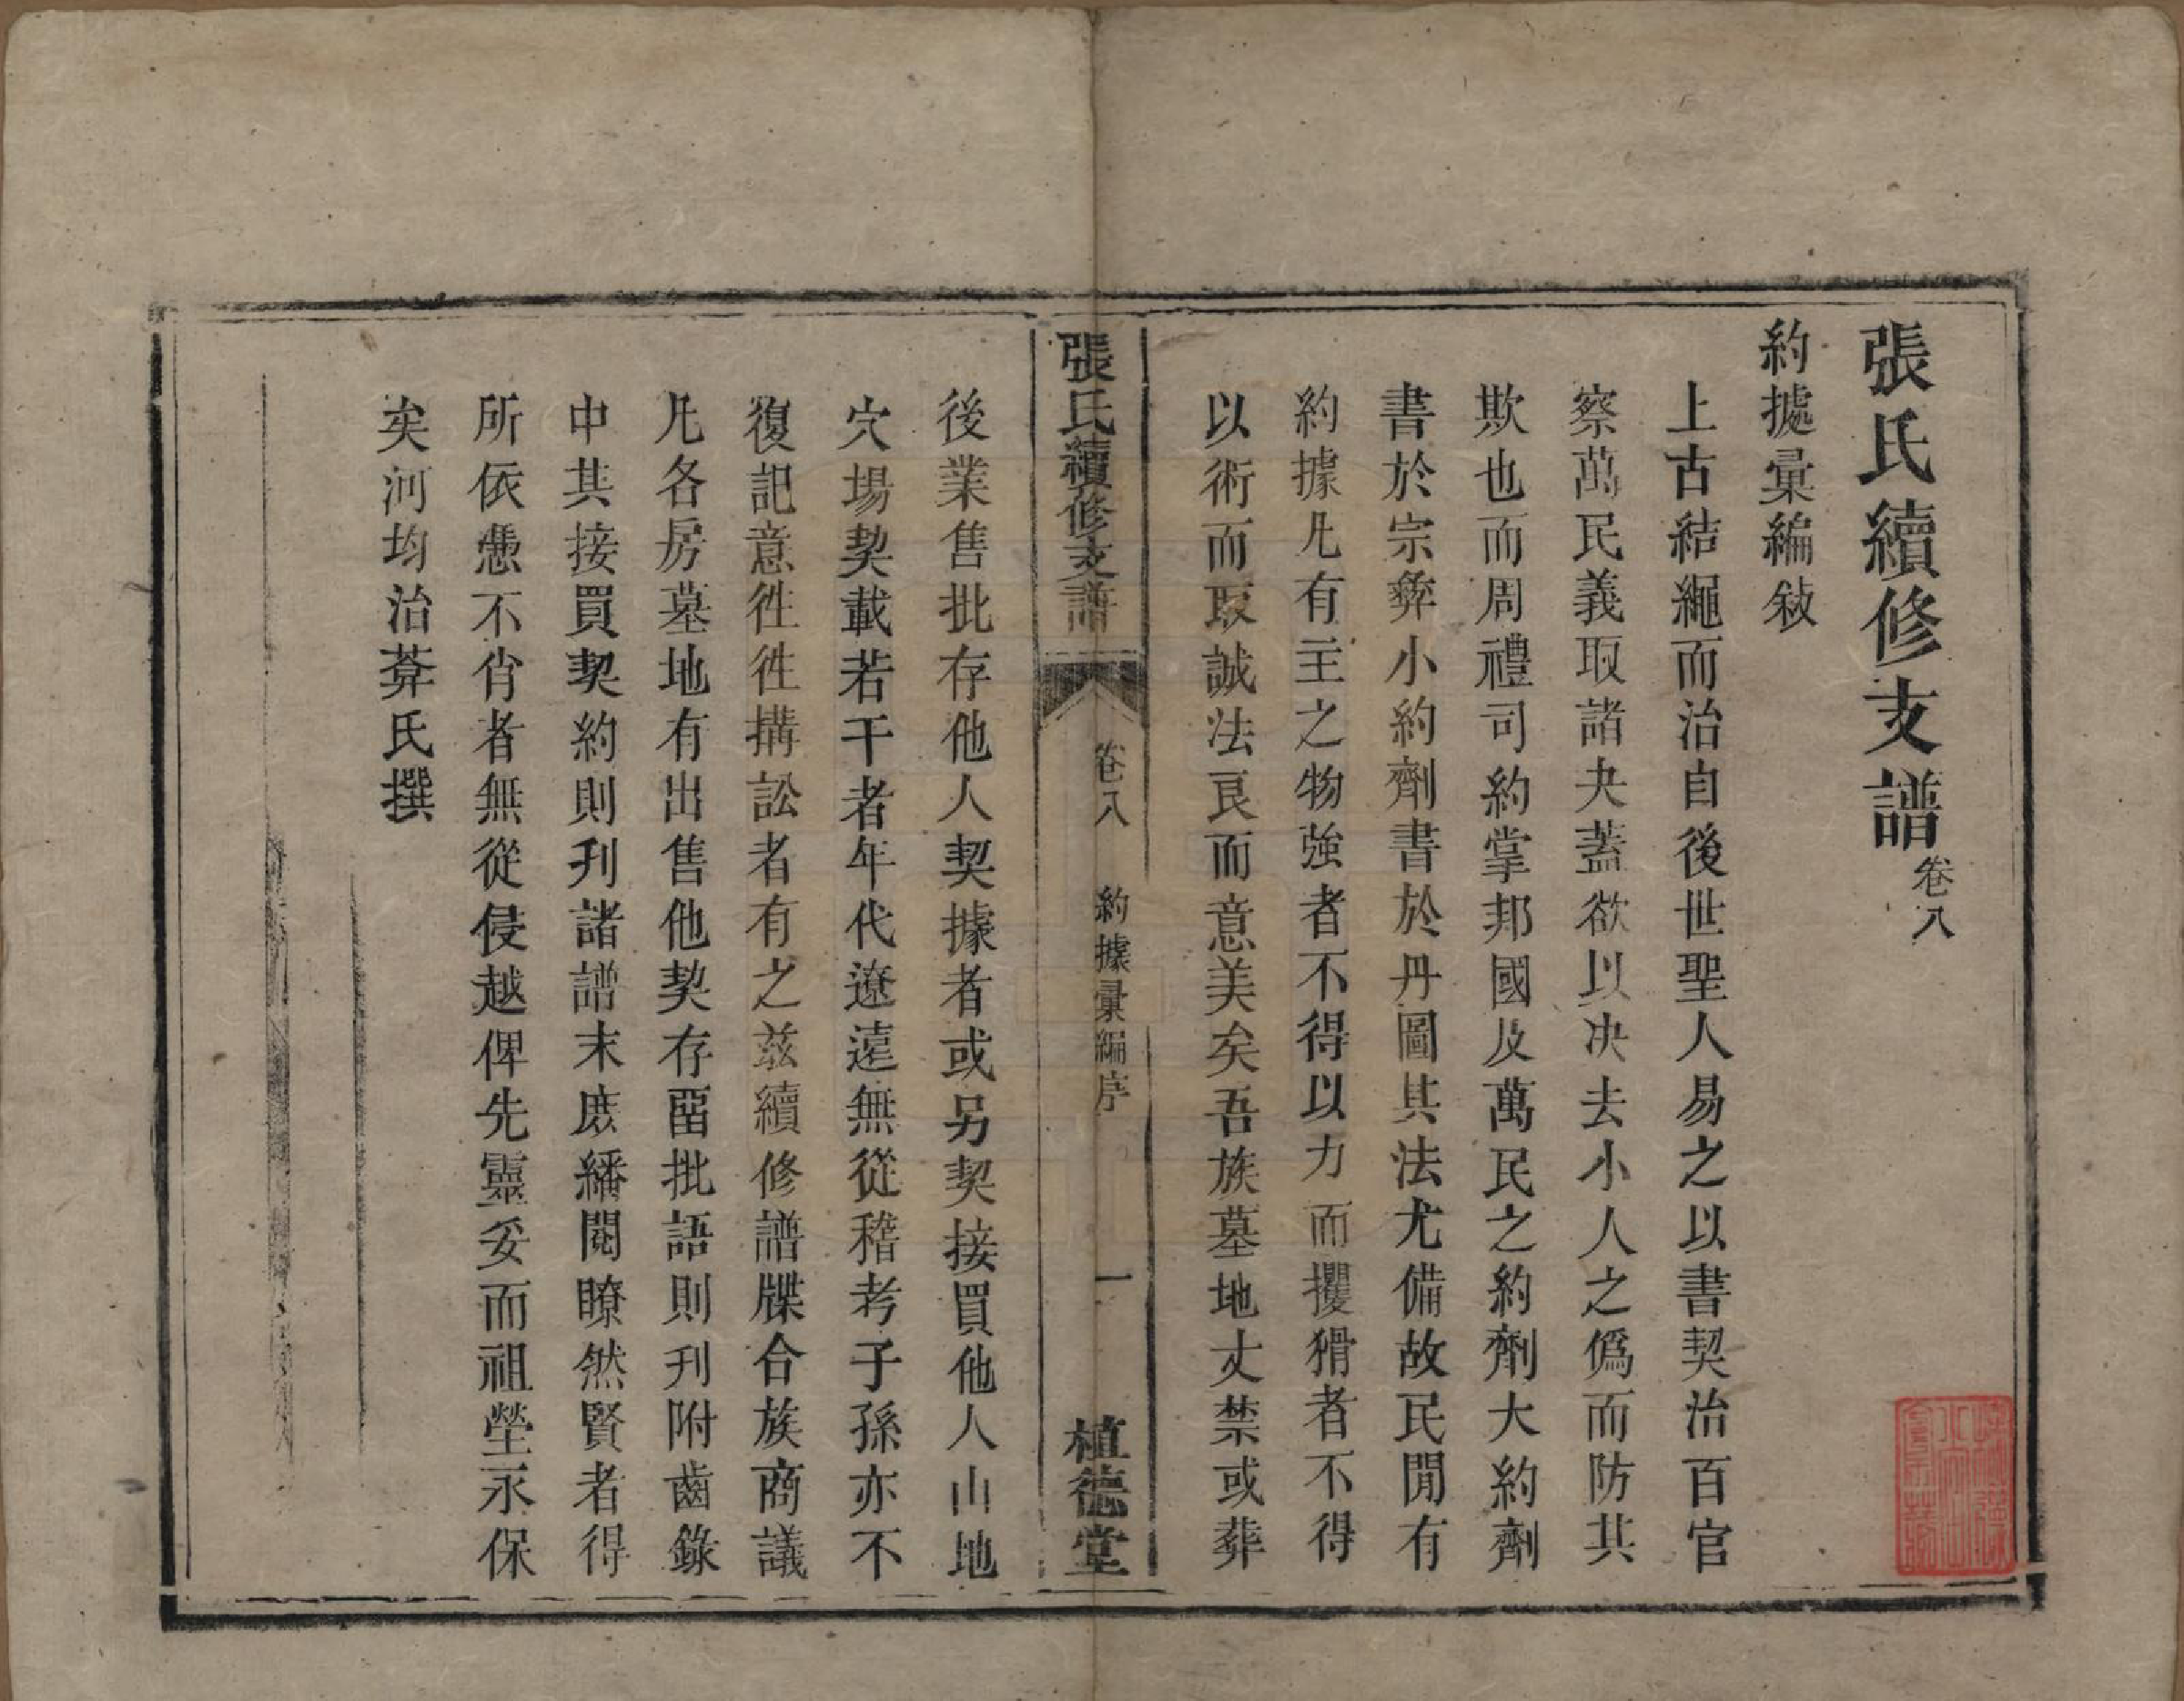 張氏續修支譜卷八
約據彙編敍
上古結繩而治自後世聖人易之以書契治百官
察萬民義取諸夬蓋欲以决去小人之僞而防其
欺也而周禮司約掌邦國及萬民之約劑大約劑
書於宗彜小約劑書於丹圖其法尤備故民閒有
約據凡有主之物強者不得以力而攫猾者不得
以術而取誠法良而意美矣吾族墓地丈禁或葬
張氏續修支譜
卷八
約據彙編序
一
植德堂
後業售批存他人契據者或另契接買他人山地
穴塲契載若干者年代遼遠無從稽考子孫亦不
復記意徃徃搆訟者有之兹續修譜牒合族商議
凡各房墓地有出售他契存畱批語則刋附齒錄
中其接買契約則刋諸譜末庻繙閱瞭然賢者得
所依慿不肖者無從侵越俾先靈妥而祖塋永保
矣河均治莽氏撰